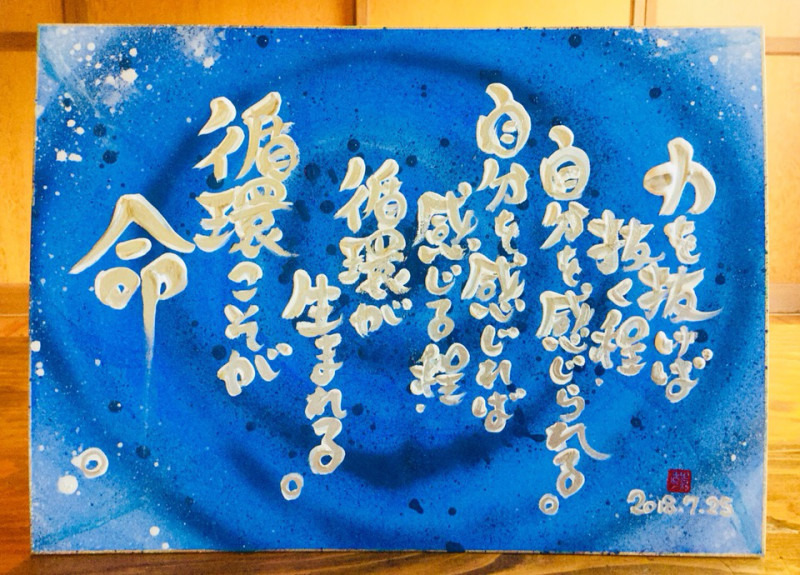 力を抜けば
抜く程
自分を感じられる。
自分を感じれば
感じる程
循環が
生まれる。
循環こそが
命。
2018.7.25